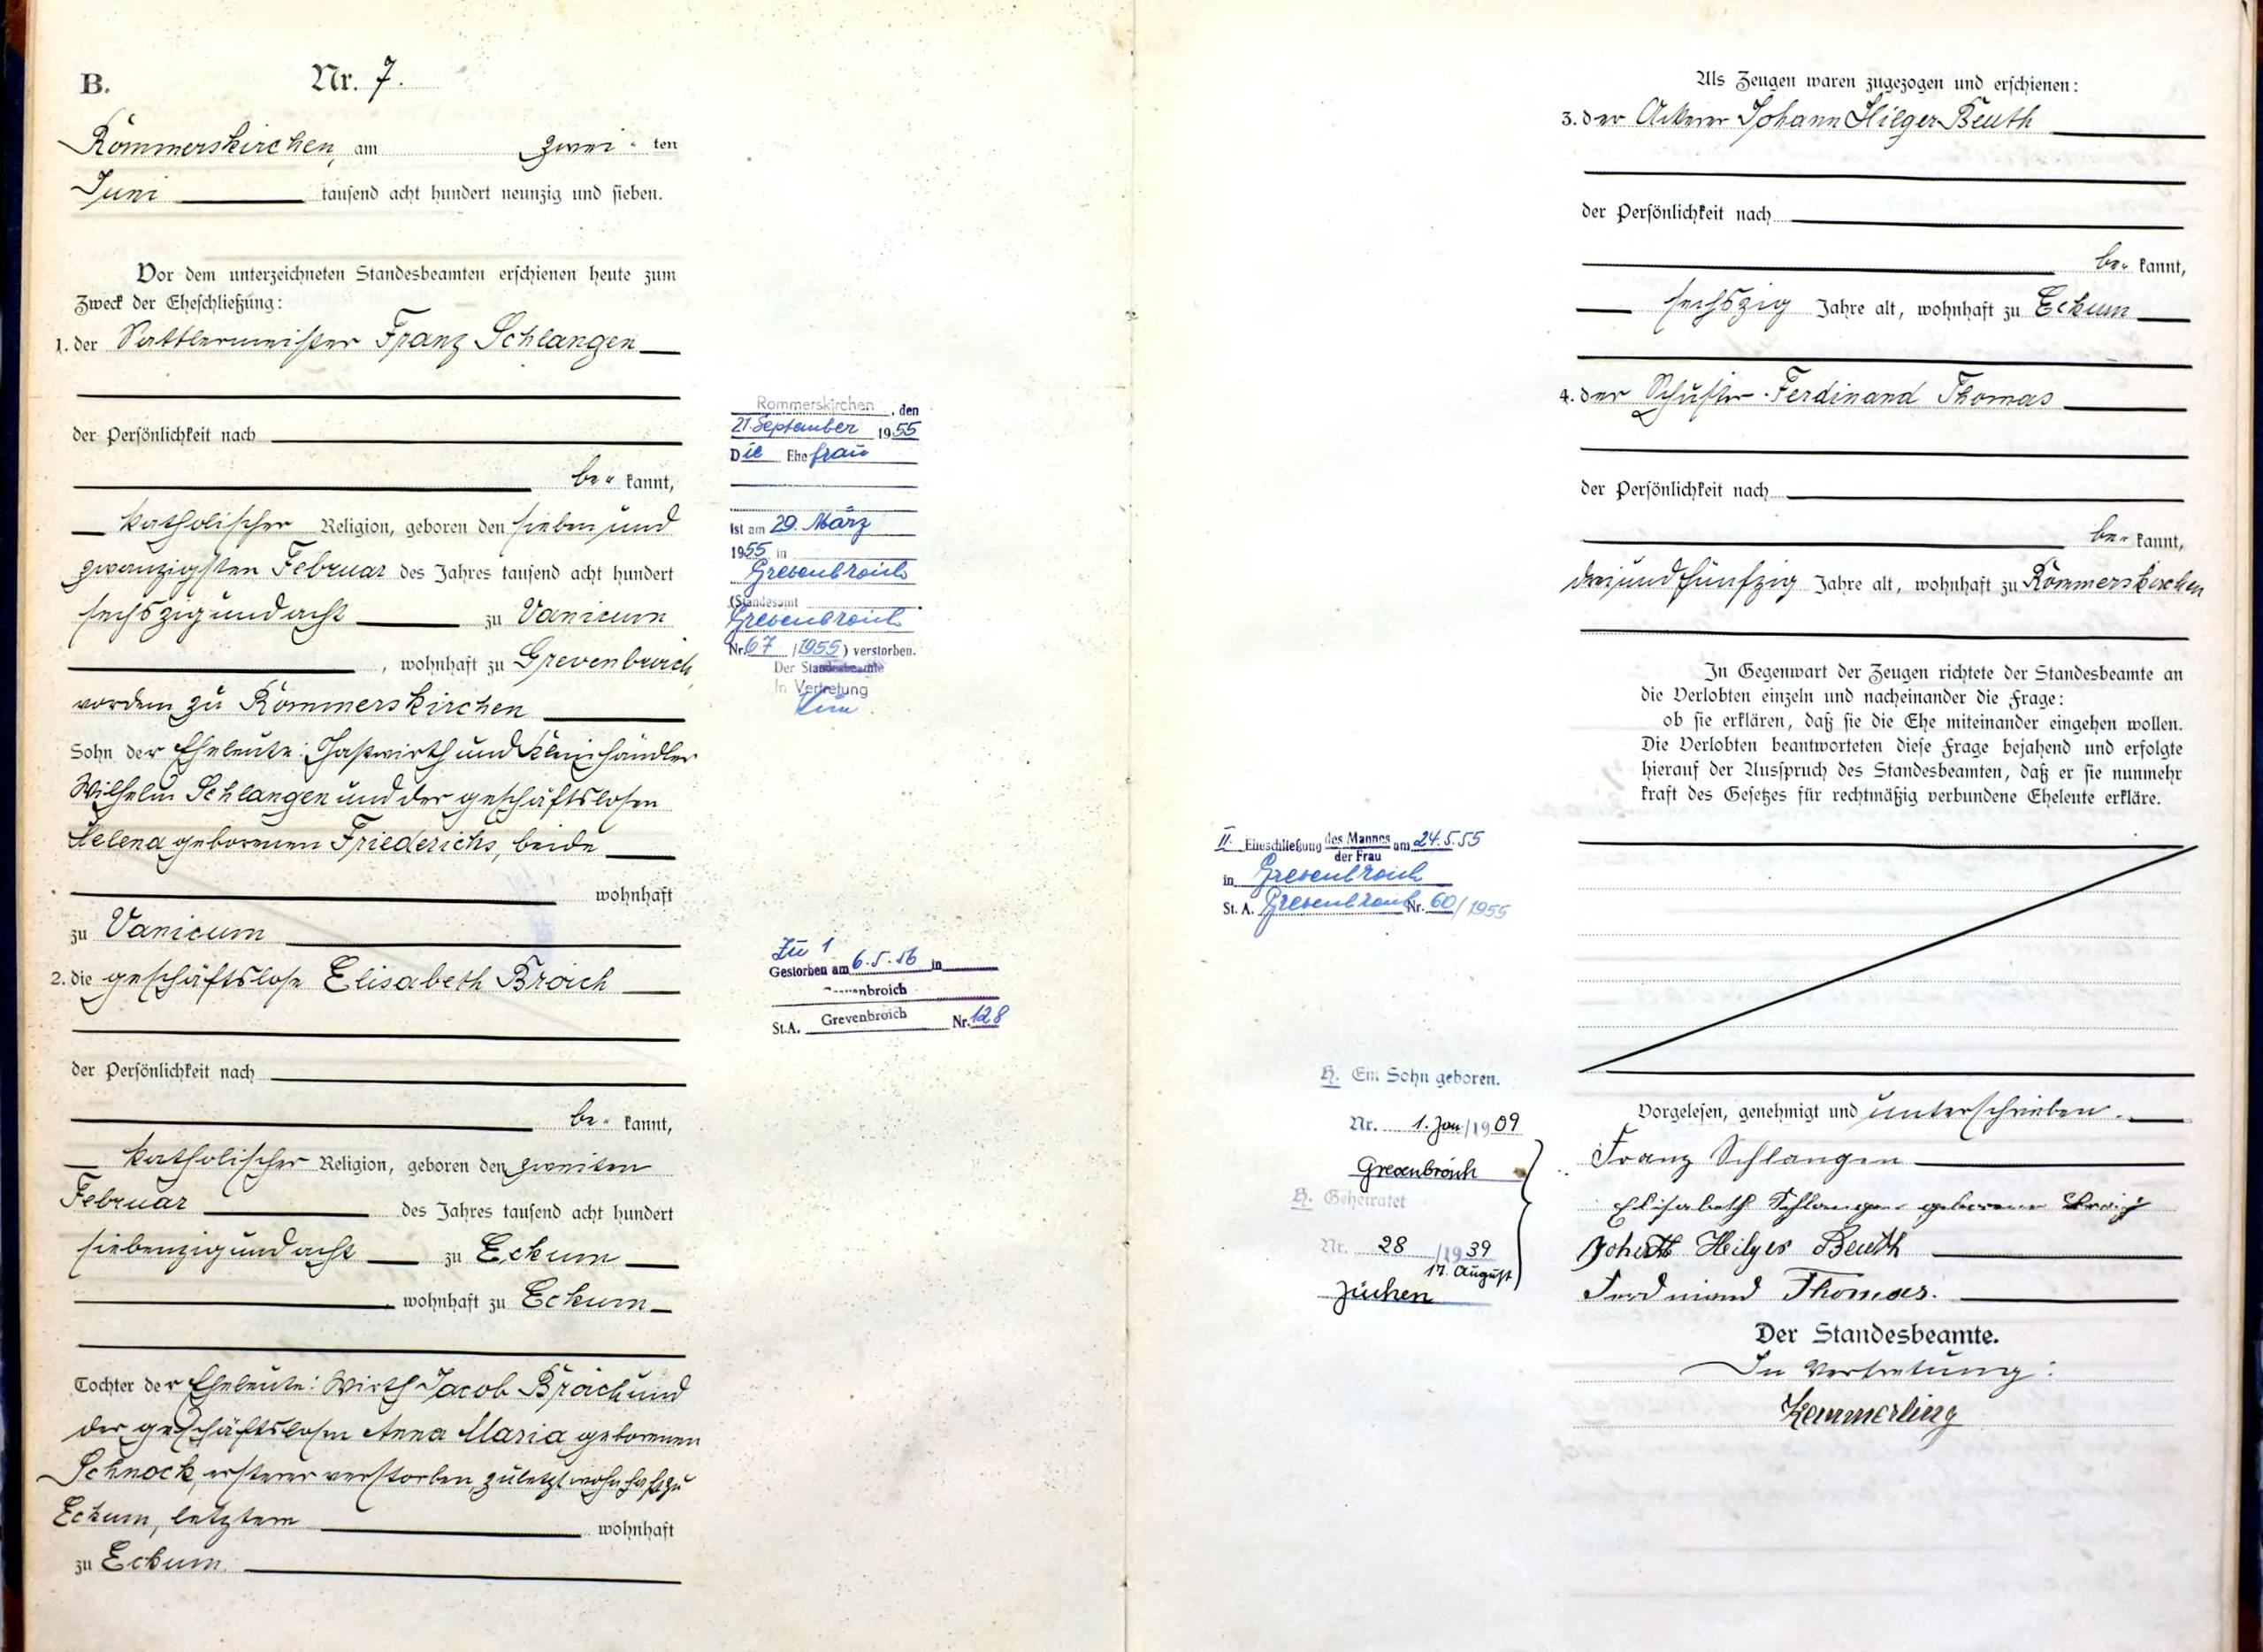 B. Nr. 7.
Rommerskirchen, am zwei- ten
Juni tausend acht hundert neunzig und sieben.
Vor dem unterzeichneten Standesbeamten erschienen heute zum
Zweck der Eheschließung:
1. der Sattlermeister Franz Schlangen
der Persönlichkeit nach
be- kannt,
katholischer Religion, geboren den sieben und
zwanzigsten Februar des Jahres tausend acht hundert
sechszig und acht zu Vanicum
, wohnhaft zu Grevenbroich,
vordem zu Rommerskirchen
Sohn der Eheleute: Gastwirth und Kleinhändler
Wilhelm Schlangen und der geschäftslosen
Helena geborenen Friederichs, beide
wohnhaft
zu Vanicum
2. die geschäftslose Elisabeth Broich
der Persönlichkeit nach
be- kannt,
katholischer Religion, geboren den zweiten
Februar des Jahres tausend acht hundert
siebenzig und acht zu Eckum
wohnhaft zu Eckum
Tochter der Eheleute: Wirth Jacob Broich und
der geschäftslosen Anna Maria geborenen
Schnock, ersterer verstorben, zuletzt wohnhaft zu
Eckum, letztere wohnhaft
zu Eckum.
Rommerskirchen, den
21. September 1955
Die Ehefrau
ist am 29. März
1955 in
Grevenbroich
(Standesamt
Grevenbroich
Nr. 67 /1955) verstorben.
Der Standesbeamte
In Vertretung
Zu 1
Gestorben am 6.5.56 in
nbroich
St.A. Grevenbroich Nr. 128
II. Eheschließung des Mannes am 24.5.55
der Frau
in Grevenbroich
St. A. Grevenbroich Nr. 60/1955
H. Ein Sohn geboren.
Nr. 1. Jan/1909
Grevenbroich
H. Geheiratet
Nr. 28 /1939
17. August
Jüchen
Als Zeugen waren zugezogen und erschienen:
3. der Ackerer Johann Hilger Beuth
der Persönlichkeit nach
be- kannt,
sechszig Jahre alt, wohnhaft zu Eckum
4. der Schuster Ferdinand Thomas
der Persönlichkeit nach
be- kannt,
dreiundfünfzig Jahre alt, wohnhaft zu Rommerskirchen
In Gegenwart der Zeugen richtete der Standesbeamte an
die Verlobten einzeln und nacheinander die Frage:
ob sie erklären, daß sie die Ehe miteinander eingehen wollen.
Die Verlobten beantworteten diese Frage bejahend und erfolgte
hierauf der Ausspruch des Standesbeamten, daß er sie nunmehr
kraft des Gesetzes für rechtmäßig verbundene Eheleute erkläre.
Vorgelesen, genehmigt und unterschrieben.
Franz Schlangen
Elisabeth Schlangen geborene Broich
Heilger Beuth
Ferdinand Thomas.
Der Standesbeamte.
In Vertretung:
Kemmerling